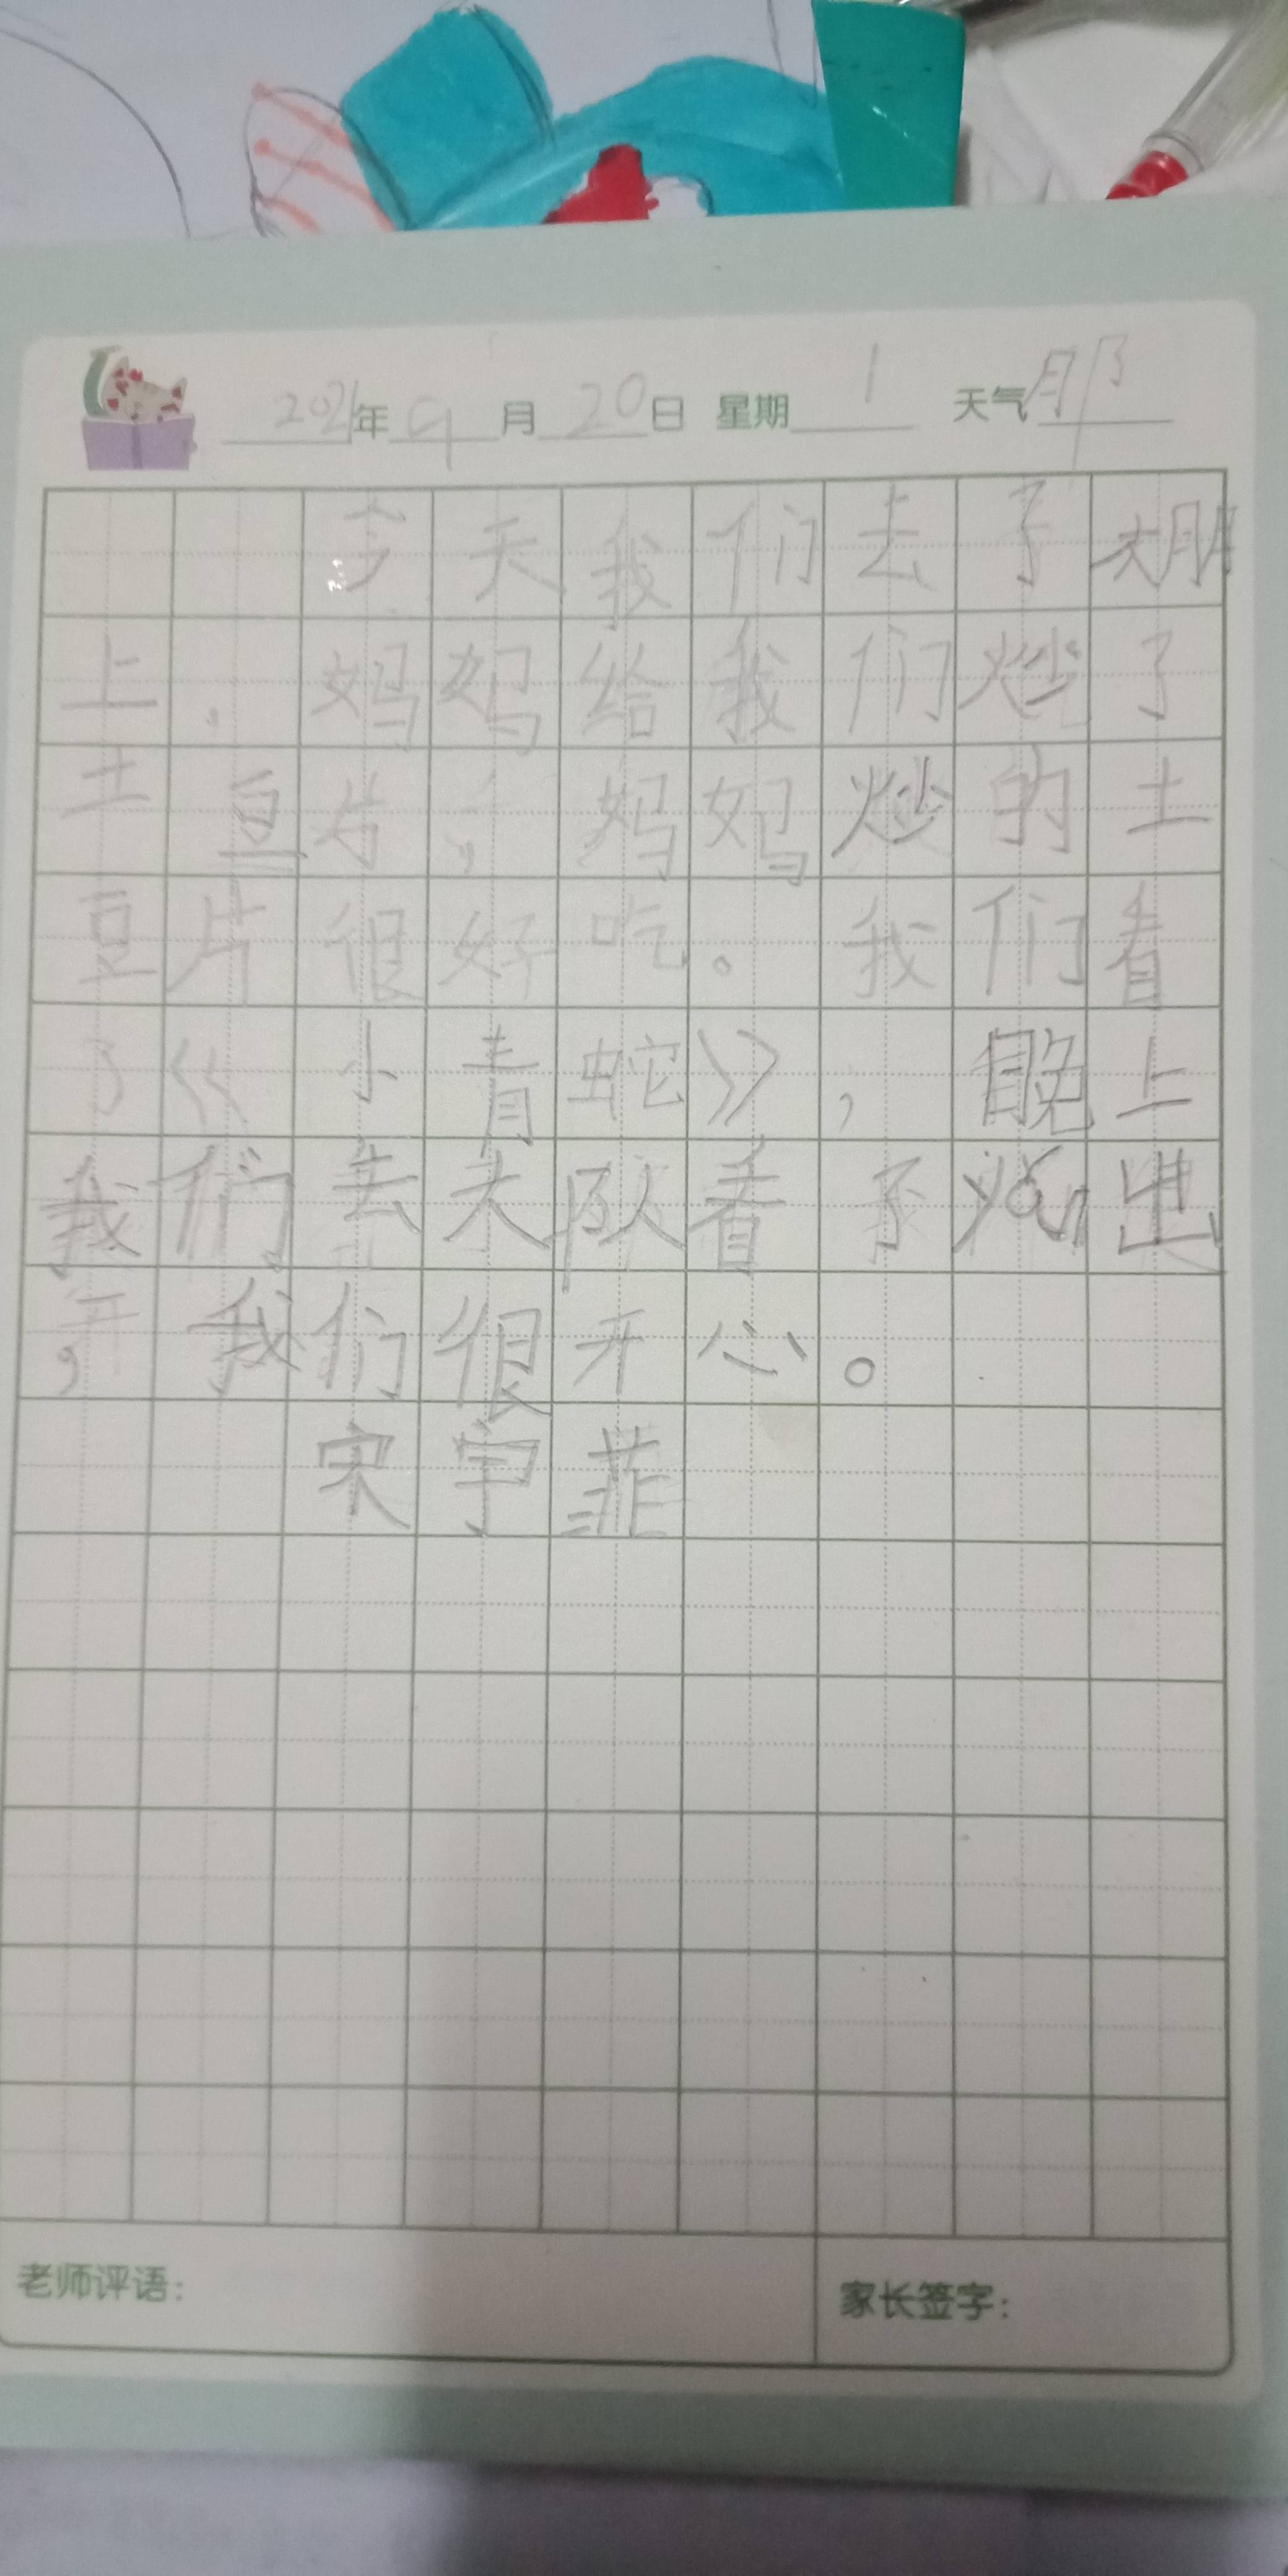 2021年9月20日 星期1 天气阴
今天我们去了大棚
上，妈妈给我们炒了
土豆片，妈妈炒的土
豆片很好吃。我们看
了《小青蛇》，晚上
我们去大队看了yan出
，我们很开心。
宋宇菲
老师评语： 家长签字：